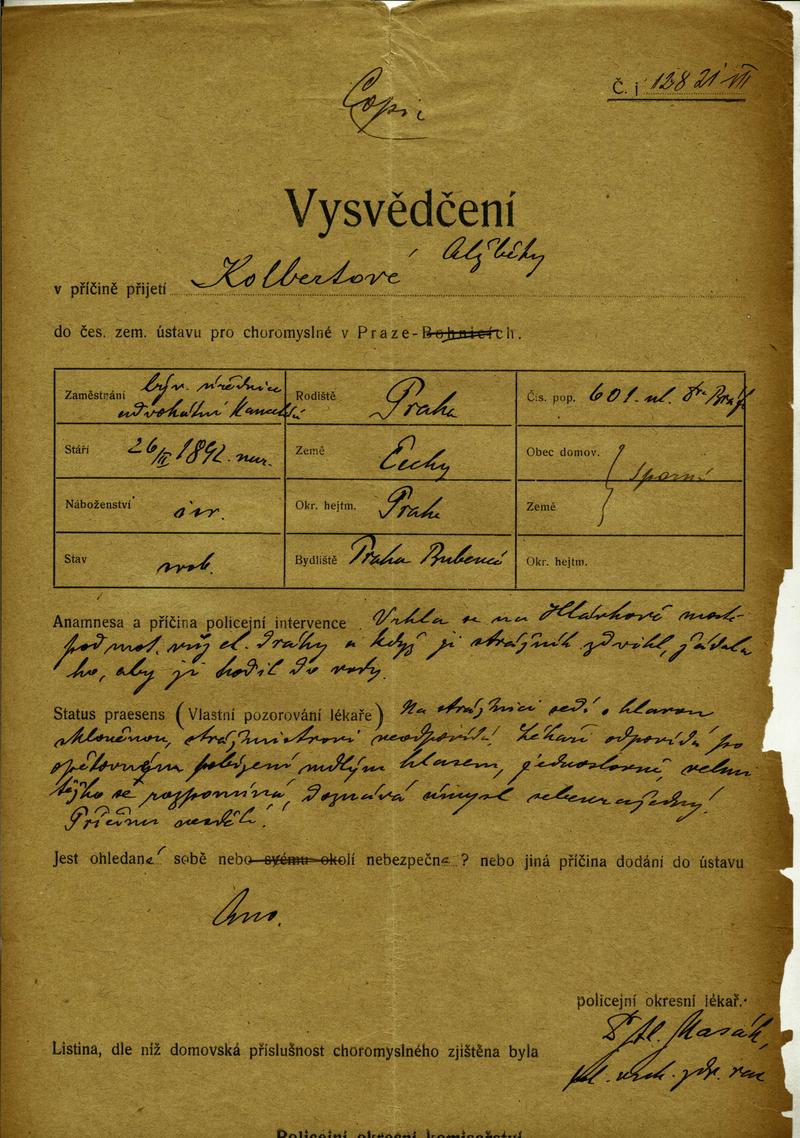 Č. j 12821 VII
Vysvědčení
v příčině přijetí Kolbertové Alžběty
do čes. zem. ústavu pro choromyslné v Praze-Bohnicích.
Zaměstnání býv. úřednice
advokátní
Rodiště Praha
Čís. pop. 601. ul. Dra Bráf
Stáří 26/II 1892. nar.
Země Čechy
Obec domov. sporné
Náboženství isr.
Okr. hejtm. Praha
Země
Stav svob.
Bydliště Praha Bubeneč
Okr. hejtm.
Anamnesa a příčina policejní intervence Vrhla se na Hlávkově mostě
pod mot. vůz el. dráhy a když ji strážník zdvihl, žádala
ho, aby ji hodil do vody.
Status praesens (Vlastní pozorování lékaře) Na strážnici sedí s hlavou
skloněnou, strážmistrovi neodpovídá. Lékaři odpovídá po
opětovném pobízení mdlým hlasem, jednoslovně, velmi
těžko se rozpomíná, doznává úmysl sebevražedný.
Příčinu nesdělí.
Jest ohledaná sobě nebo svému okolí nebezpečna? nebo jiná příčina dodání do ústavu
Ano.
policejní okresní lékař.
Masák,
Listina, dle níž domovská příslušnost choromyslného zjištěna byla
Policejní okresní komisařství